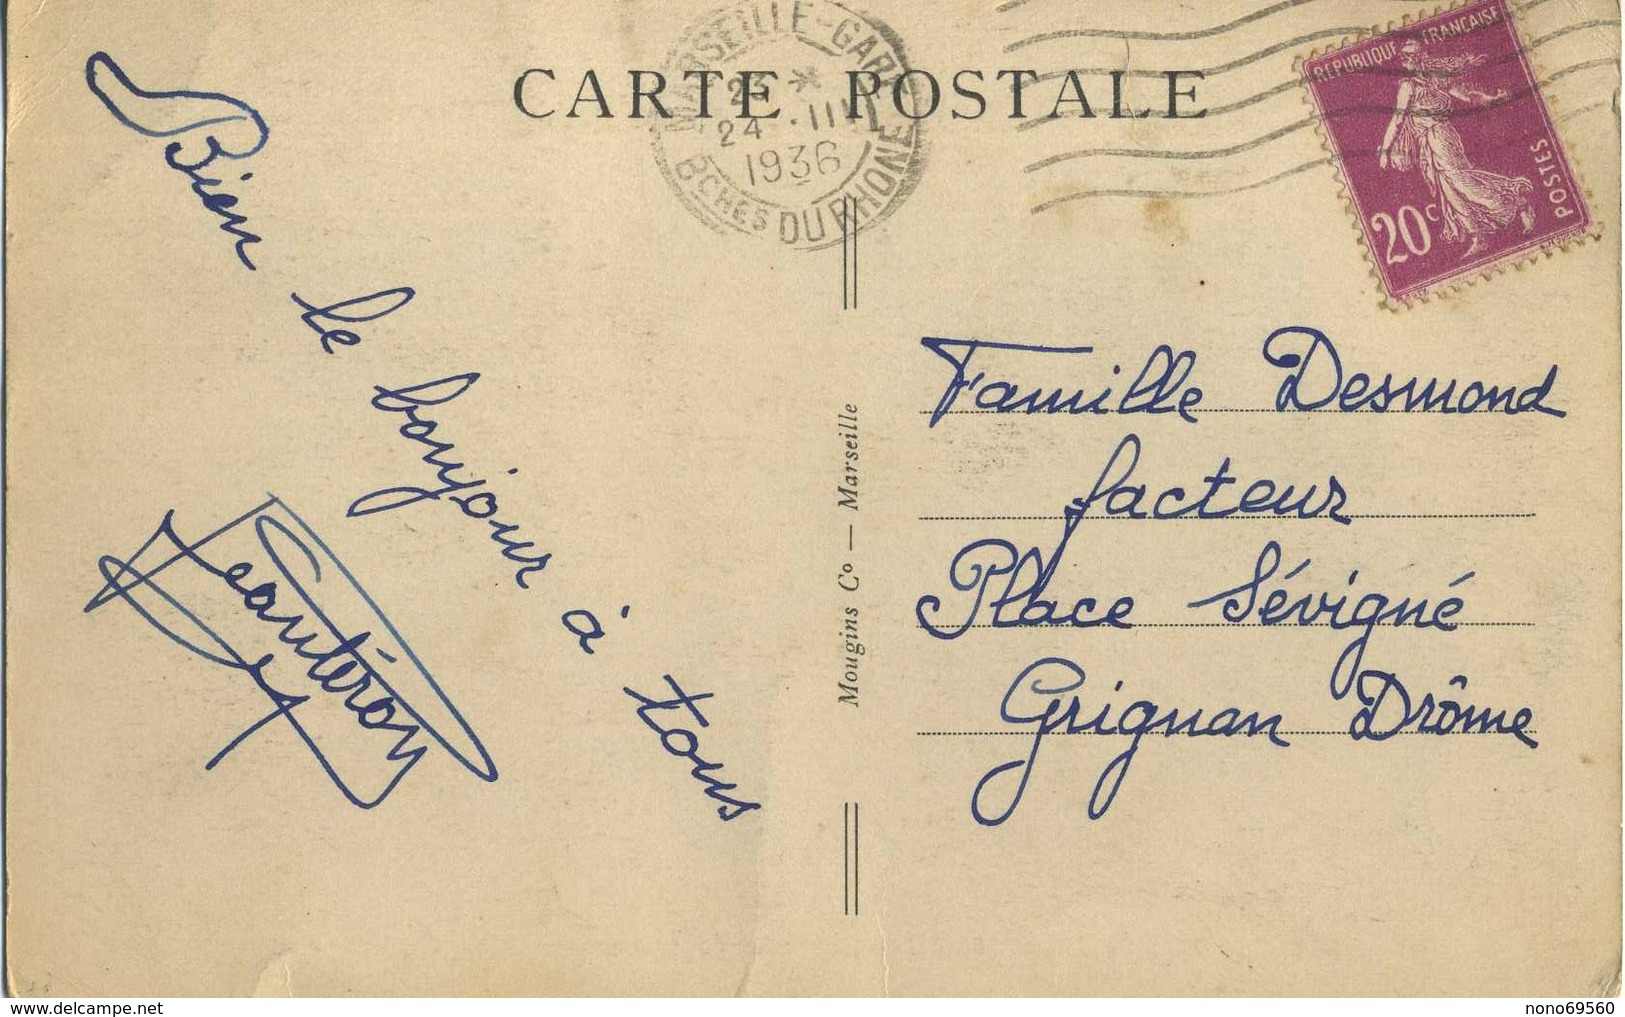 CARTE POSTALE
MARSEILLE-GARE
24 · III
1936
BCHES DU RHONE
REPUBLIQUE FRANÇAISE
20c
POSTES
Bien le bonjour à tous
Mougins Co — Marseille
Famille Desmond
facteur
Place Sévigné
Grignan Drôme
delcampe.net
nono69560